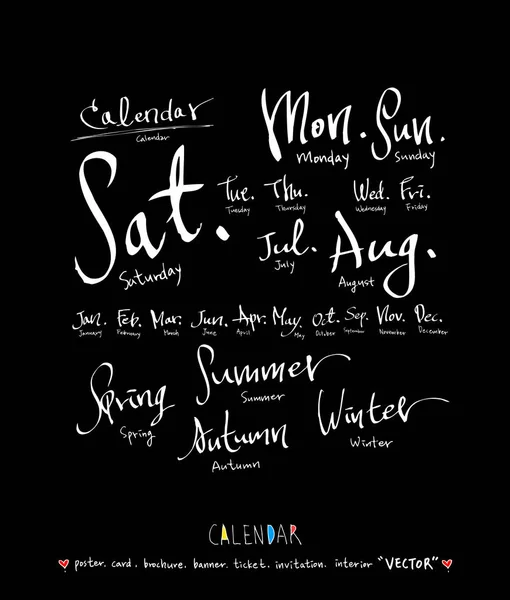 Calendar
Calendar
Mon. Sun.
Monday Sunday
Sat.
Saturday
Tue. Thu. Wed. Fri.
Tuesday Thursday Wednesday Friday
Jul. Aug.
July August
Jan. Feb. Mar. Jun. Apr. May. Oct. Sep. Nov. Dec.
January February March June April May October September November December
Spring Summer
Spring Summer
Autumn Winter
Autumn Winter
CALENDAR
poster. card. brochure. banner. ticket. invitation. interior "VECTOR"